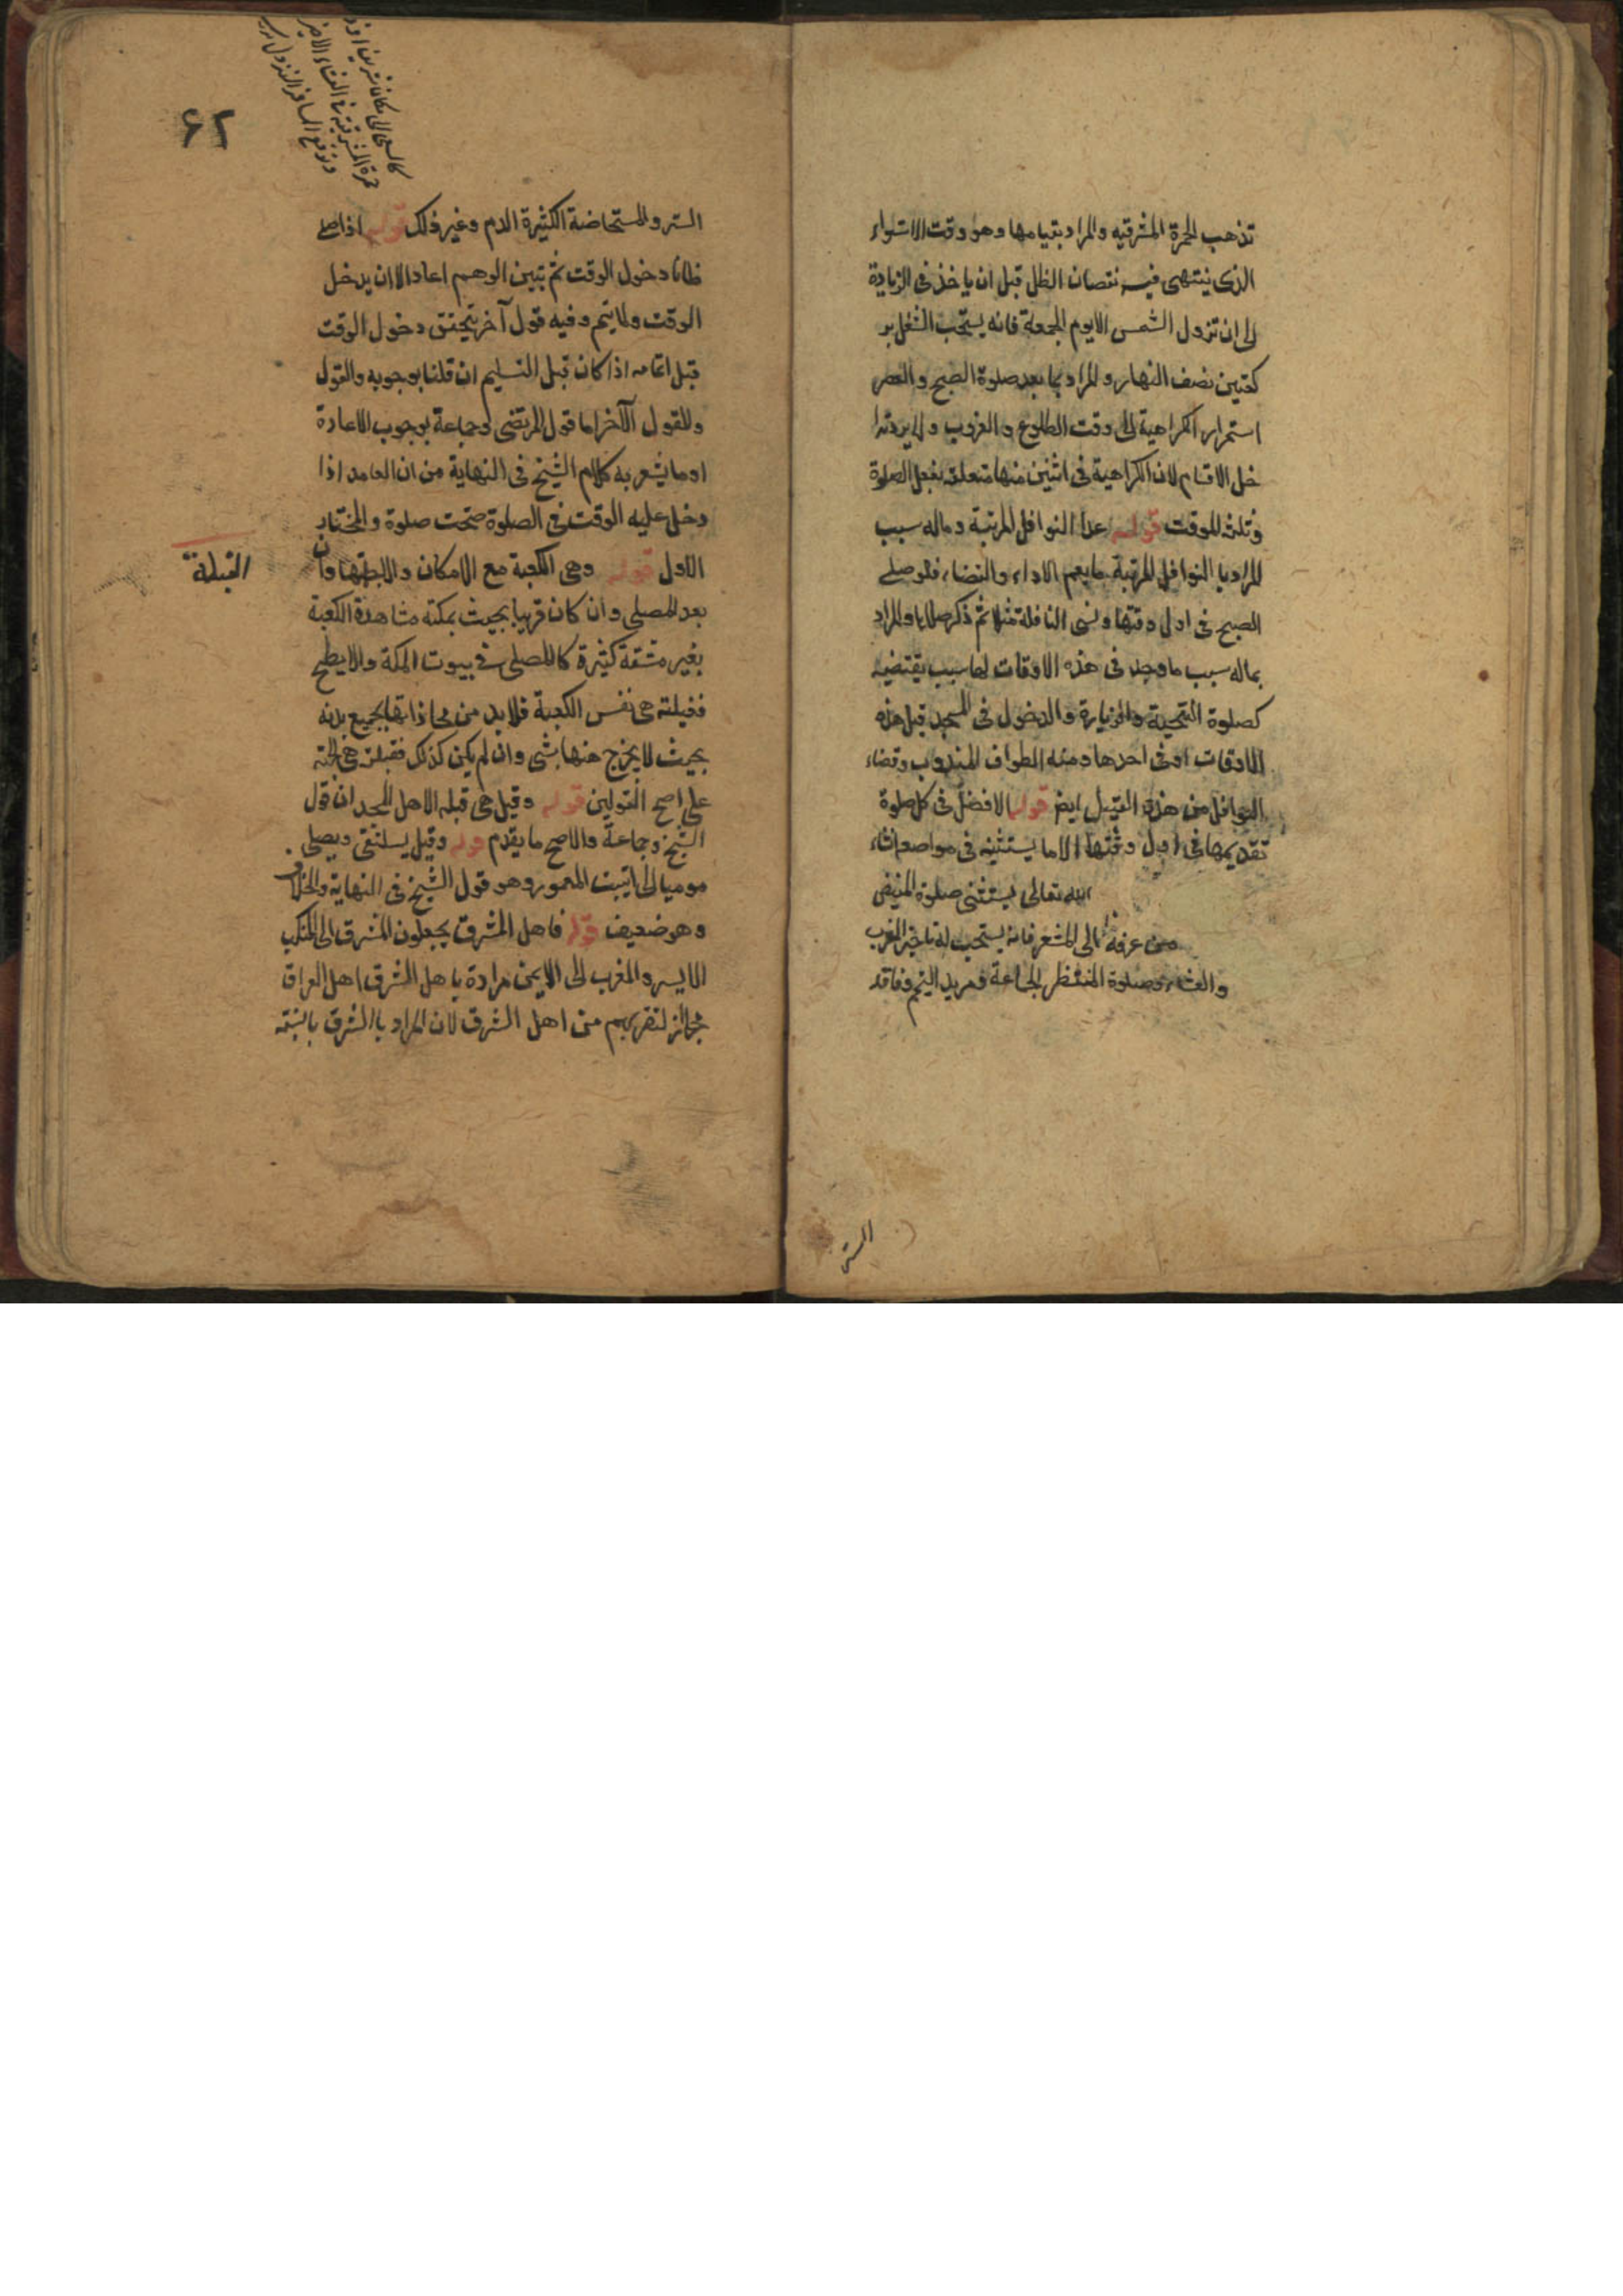 تذهب الحمرة المشرقيه والمراد بقيامها وهو وقت الاستواء
الذى ينتهى فيه نقصان الظل قبل ان ياخذ فى الزيادة
الى ان تزول الشمس الا يوم الجمعة فانه يستحب التنفل بر
كعتين نصف النهار والمراد بما بعد صلوة الصبح والعصر
استمرار الكراهية الى وقت الطلوع والغروب ولا يرد تدا
خل الاقسام لان الكراهية فى اثنين منها متعلقه بفعل الصلوة
وثلثه للوقت قوله عدا النوافل المرتبة وماله سبب
المراد با النوافل المرتبة ما يعم الاداء والقضاء فلو صلى
الصبح فى اول وقتها ونسى النافلة مثلا ثم ذكر صلاها والمراد
بماله سبب ما وجد فى هذه الاوقات لها سبب يقتضيه
كصلوة التحية والزيارة والدخول فى المسجد قبل هذه
الاوقات او فى احدها ومنه الطواف المندوب وقضاء
النوافل من هذا القبيل ايض قوله الافضل فى كل صلوة
تقديمها فى اول وقتها الا ما يستثنيه فى مواضع انشاء
الله تعالى يستثنى صلوة المفيض
من عرفة الى المشعر فانه يستحب له تاخير المغرب
والعشاء وصلوة المنتظر الجماعة ومريد التيمم وفاقد
الستر
۶۲
القبلة
الستر والمستحاضة الكثيرة الدم وغير ذلك قوله اذا صلى
ظانا دخول الوقت ثم تبين الوهم اعاد الا ان يدخل
الوقت ولما يتم وفيه قول آخر يتحقق دخول الوقت
قبل اتمامه اذا كان قبل التسليم ان قلنا بوجوبه والقول
وللقول الآخر اما قول المرتضى وجماعة بوجوب الاعادة
او ما يشعر به كلام الشيخ فى النهاية من ان العامد اذا
دخل عليه الوقت فى الصلوة صحت صلوة والمختار
الاول قوله وهى الكعبة مع الامكان والا جهتها وان
بعد المصلى وان كان قريبا بحيث يمكنه مشاهدة الكعبة
بغير مشقة كثيرة كالمصلى فى بيوت المكة والابطح
فقبلته هى نفس الكعبة فلا بد من محاذاتها بجميع بدنه
بحيث لا يخرج منها بشى وان لم يكن كذلك فقبلته هى الجهة
على اصح القولين قوله وقيل هى قبله لاهل المسجد ان قول
الشيخ وجماعة والاصح ما يقدم قوله وقيل يستلقى ويصلى
موميا الى البيت المعمور وهو قول الشيخ فى النهاية والخلاف
وهو ضعيف قوله فاهل المشرق يجعلون المشرق الى المنكب
الايسر والمغرب الى الايمن مرادة باهل الشرق اهل العراق
مجازا لتقربهم من اهل الشرق لان المراد با الشرق بالنسبته